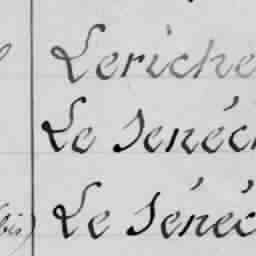 Leriche
Le Senéc
bis) Le Sénéc